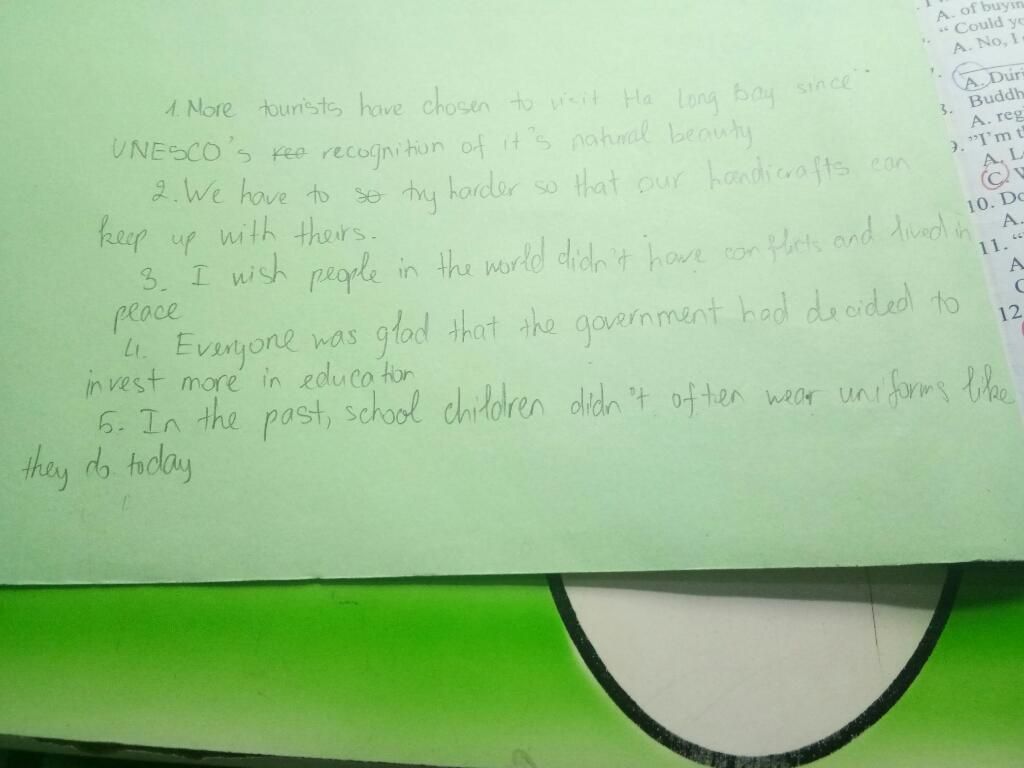 1. More tourists have chosen to visit Ha Long Bay since
UNESCO's recognition of it's natural beauty
2. We have to so try harder so that our handicrafts can
keep up with theirs.
3. I wish people in the world didn't have conflicts and lived in
peace
4. Everyone was glad that the government had decided to
invest more in education
5. In the past, school children didn't often wear uniforms like
they do today
A. of buyin
"Could yo
A. No, I
A. Duri
Buddh
A. reg
"I'm t
A. L
C.
10. Do
A.
11. "
A
C
12